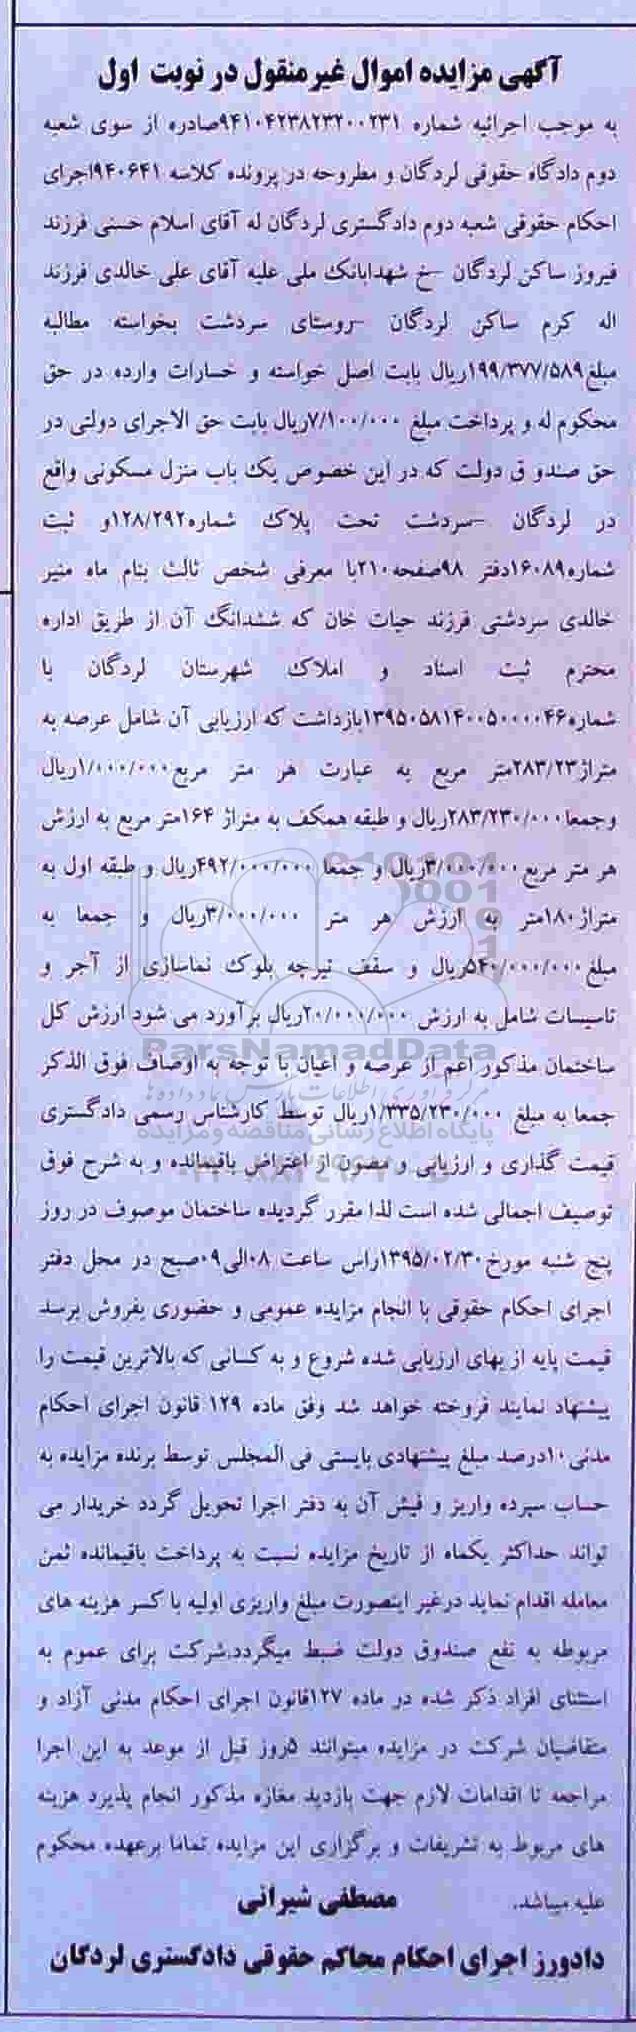 آگهی مزایده اموال غیرمنقول در نوبت اول
به موجب اجرائیه شماره ۹۴۱۰۴۲۳۸۲۳۲۰۰۲۳۱صادره از سوی شعبه
دوم دادگاه حقوقی لردگان و مطروحه در پرونده کلاسه ۹۴۰۶۴۱اجرای
احکام حقوقی شعبه دوم دادگستری لردگان له آقای اسلام حسنی فرزند
فیروز ساکن لردگان –خ شهدابانک ملی علیه آقای علی خالدی فرزند
اله کرم ساکن لردگان –روستای سردشت بخواسته مطالبه
مبلغ۱۹۹/۳۷۷/۵۸۹ریال بابت اصل خواسته و خسارات وارده در حق
محکوم له و پرداخت مبلغ ۷/۱۰۰/۰۰۰ریال بابت حق الاجرای دولتی در
حق صندو ق دولت که در این خصوص یک باب منزل مسکونی واقع
در لردگان –سردشت تحت پلاک شماره۱۲۸/۲۹۲و ثبت
شماره۱۶۰۸۹دفتر ۹۸صفحه۲۱۰با معرفی شخص ثالث بنام ماه منیر
خالدی سردشتی فرزند حیات خان که ششدانگ آن از طریق اداره
محترم ثبت اسناد و املاک شهرستان لردگان با
شماره۱۳۹۵۰۵۸۱۴۰۰۵۰۰۰۰۴۶بازداشت که ارزیابی آن شامل عرصه به
متراژ۲۸۳/۲۳متر مربع به عبارت هر متر مربع۱/۰۰۰/۰۰۰ریال
وجمعا۲۸۳/۲۳۰/۰۰۰ریال و طبقه همکف به متراژ ۱۶۴متر مربع به ارزش
هر متر مربع۳/۰۰۰/۰۰۰ریال و جمعا ۴۹۲/۰۰۰/۰۰۰ریال و طبقه اول به
متراژ۱۸۰متر به ارزش هر متر ۳/۰۰۰/۰۰۰ریال و جمعا به
مبلغ۵۴۰/۰۰۰/۰۰۰ریال و سقف تیرچه بلوک نماسازی از آجر و
تاسیسات شامل به ارزش ۲۰/۰۰۰/۰۰۰ریال برآورد می شود ارزش کل
ParsNamadData
ساختمان مذکور اعم از عرصه و اعیان با توجه به اوصاف فوق الذکر
جمعا به مبلغ ۱/۳۳۵/۲۳۰/۰۰۰ریال توسط کارشناس رسمی دادگستری
پایگاه اطلاع رسانی مناقصه و مزایده
قیمت گذاری و ارزیابی و مصون از اعتراض باقیمانده و به شرح فوق
توصیف اجمالی شده است لذا مقرر گردیده ساختمان موصوف در روز
پنج شنبه مورخ۱۳۹۵/۰۲/۳۰راس ساعت ۰۸الی۰۹صبح در محل دفتر
اجرای احکام حقوقی با انجام مزایده عمومی و حضوری بفروش برسد
قیمت پایه از بهای ارزیابی شده شروع و به کسانی که بالاترین قیمت را
پیشنهاد نمایند فروخته خواهد شد وفق ماده ۱۲۹ قانون اجرای احکام
مدنی۱۰درصد مبلغ پیشنهادی بایستی فی المجلس توسط برنده مزایده به
حساب سپرده واریز و فیش آن به دفتر اجرا تحویل گردد خریدار می
تواند حداکثر یکماه از تاریخ مزایده نسبت به پرداخت باقیمانده ثمن
معامله اقدام نماید درغیر اینصورت مبلغ واریزی اولیه با کسر هزینه های
مربوطه به نفع صندوق دولت ضبط میگردد.شرکت برای عموم به
استثنای افراد ذکر شده در ماده ۱۲۷قانون اجرای احکام مدنی آزاد و
متقاضیان شرکت در مزایده میتوانند ۵روز قبل از موعد به این اجرا
مراجعه تا اقدامات لازم جهت بازدید مغازه مذکور انجام پذیرد هزینه
های مربوط به تشریفات و برگزاری این مزایده تماما برعهده محکوم
علیه میباشد.
مصطفی شیرانی
دادورز اجرای احکام محاکم حقوقی دادگستری لردگان